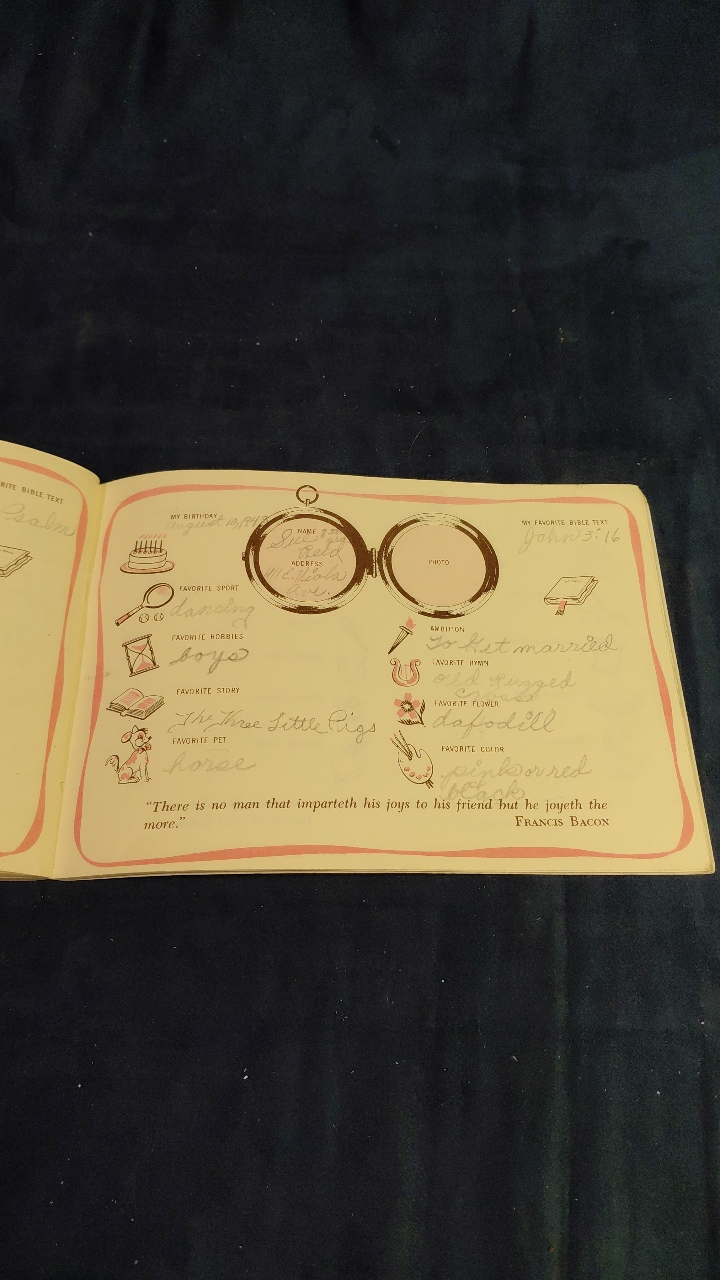 RITE BIBLE TEXT
Psalm
MY BIRTHDAY
August 10, 194
NAME
Sue
Reld
ADDRESS
Viola
Ave.
PHOTO
MY FAVORITE BIBLE TEXT
John 3:16
FAVORITE SPORT
dancing
FAVORITE HOBBIES
boys
FAVORITE STORY
The Three Little Pigs
FAVORITE PET
horse
AMBITION
To Get married
FAVORITE HYMN
Old Rugged
Cross
FAVORITE FLOWER
dafodill
FAVORITE COLOR
pink or red
black
"There is no man that imparteth his joys to his friend but he joyeth the
more."
FRANCIS BACON